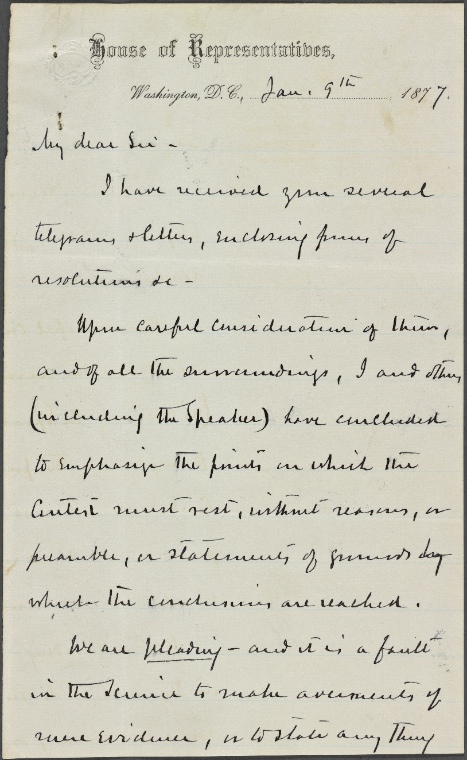 House of Representatives,
Washington, D.C., Jan. 9th 1877.
My dear Sir -
I have received your several
telegrams & letters, enclosing forms of
resolutions &c -
Upon careful consideration of them,
and of all the surroundings, I and others
(including the Speaker) have concluded
to emphasize the points on which the
Contest must rest, without reasons, or
preamble, or statements of grounds by
which the conclusions are reached.
We are pleading - and it is a fault
in the Science to make averments of
mere evidence, or to state any thing